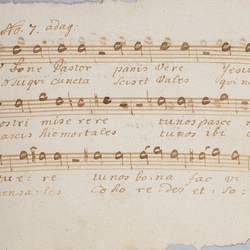 No. 7. adag:
Bone Pastor panis vere Jesu
Tu qui cuncta scis et Vales qui n
ostri miserere tu nos pasce n
ascis hic mortales tu nos ibi
tue: re tu nos bo: na fac vi
mensa: les Co ho re: des et: So: